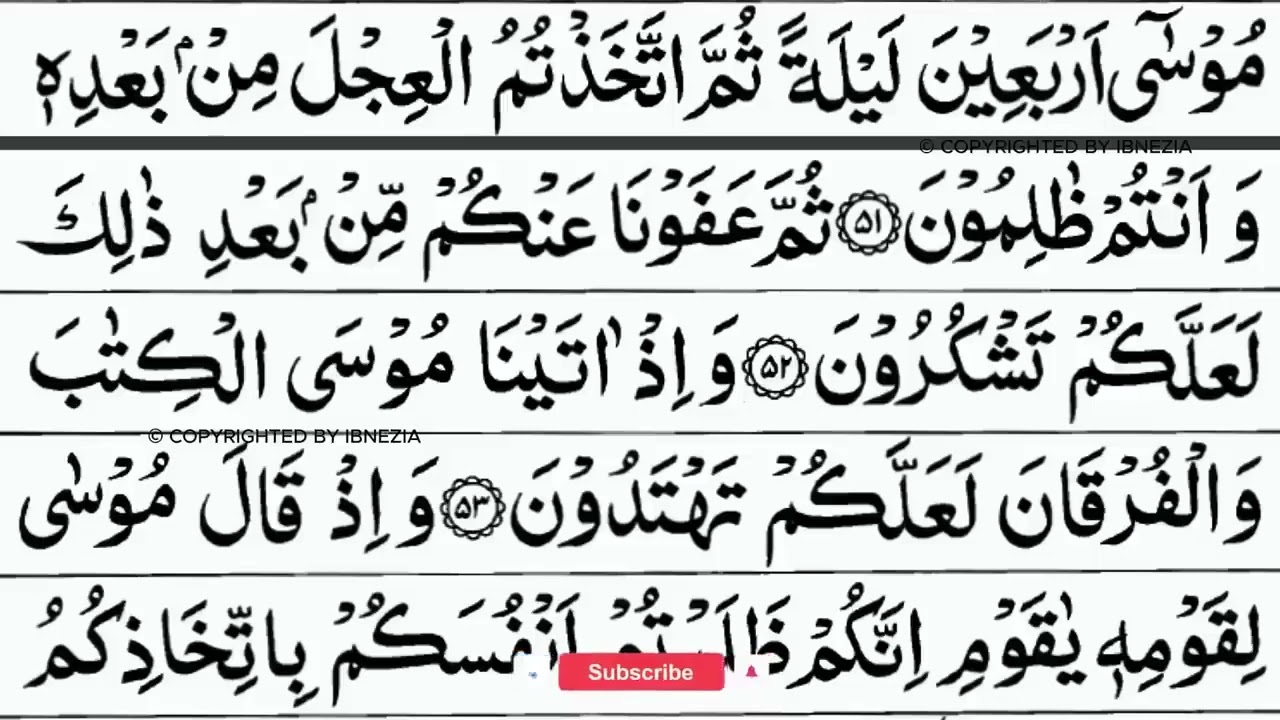 مُوْسٰۤى اَرْبَعِیْنَ لَیْلَةً ثُمَّ اتَّخَذْتُمُ الْعِجْلَ مِنْۢ بَعْدِهٖ
© COPYRIGHTED BY IBNEZIA
وَ اَنْتُمْ ظٰلِمُوْنَ ﴿۵۱﴾ ثُمَّ عَفَوْنَا عَنْكُمْ مِّنْۢ بَعْدِ ذٰلِكَ
لَعَلَّكُمْ تَشْكُرُوْنَ ﴿۵۲﴾ وَ اِذْ اٰتَیْنَا مُوْسَى الْكِتٰبَ
© COPYRIGHTED BY IBNEZIA
وَ الْفُرْقَانَ لَعَلَّكُمْ تَهْتَدُوْنَ ﴿۵۳﴾ وَ اِذْ قَالَ مُوْسٰى
لِقَوْمِهٖ یٰقَوْمِ اِنَّكُمْ ظَلَمْتُمْ اَنْفُسَكُمْ بِاتِّخَاذِكُمُ
Subscribe